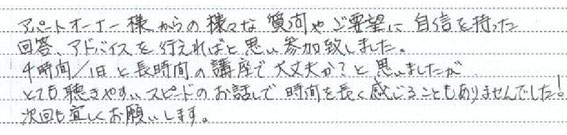 アパートオーナー様からの様々な質問やご要望に自信を持った
回答、アドバイスを行えればと思い参加致しました。
4時間/1日と長時間の講座で大丈夫か?と思いましたが
とても聴きやすいスピードのお話しで時間を長く感じることもありませんでした!
次回も宜しくお願いします。